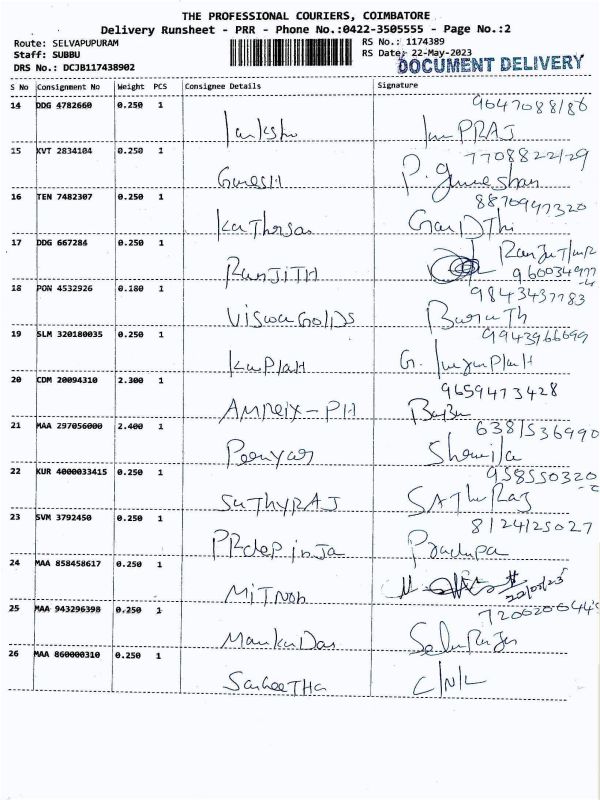 THE PROFESSIONAL COURIERS, COIMBATORE
Delivery Runsheet - PRR - Phone No.:0422-3505555 - Page No.:2
Route: SELVAPUPURAM
RS No.: 1174389
Staff: SUBBU
RS Date: 22-May-2023
DRS No.: DCJB117438902
DOCUMENT DELIVERY
S No Consignment No Weight PCS Consignee Details Signature
14 DDG 4782660 0.250 1
PRAJ
15 KVT 2834104 0.250 1
7708822129
GaneSH P. Ganeshan
16 TEN 7482307 0.250 1
8870947320
17 DDG 667284 0.250 1
RanJiTH
18 PON 4532926 0.180 1
9843437783
ViswaGolDS BaraTh
19 SLM 320180035 0.250 1
9943966699
G.
20 CDM 20094310 2.300 1
9659473428
AMNeix-PH Babu
21 MAA 297056000 2.400 1
6381536990
Sharmila
22 KUR 4000033415 0.250 1
958550320
SaThyRAJ SAThuRaj
23 SVM 3792450 0.250 1
8124125027
24 MAA 858458617 0.250 1
25 MAA 943296398 0.250 1
26 MAA 860000310 0.250 1
C/N/L